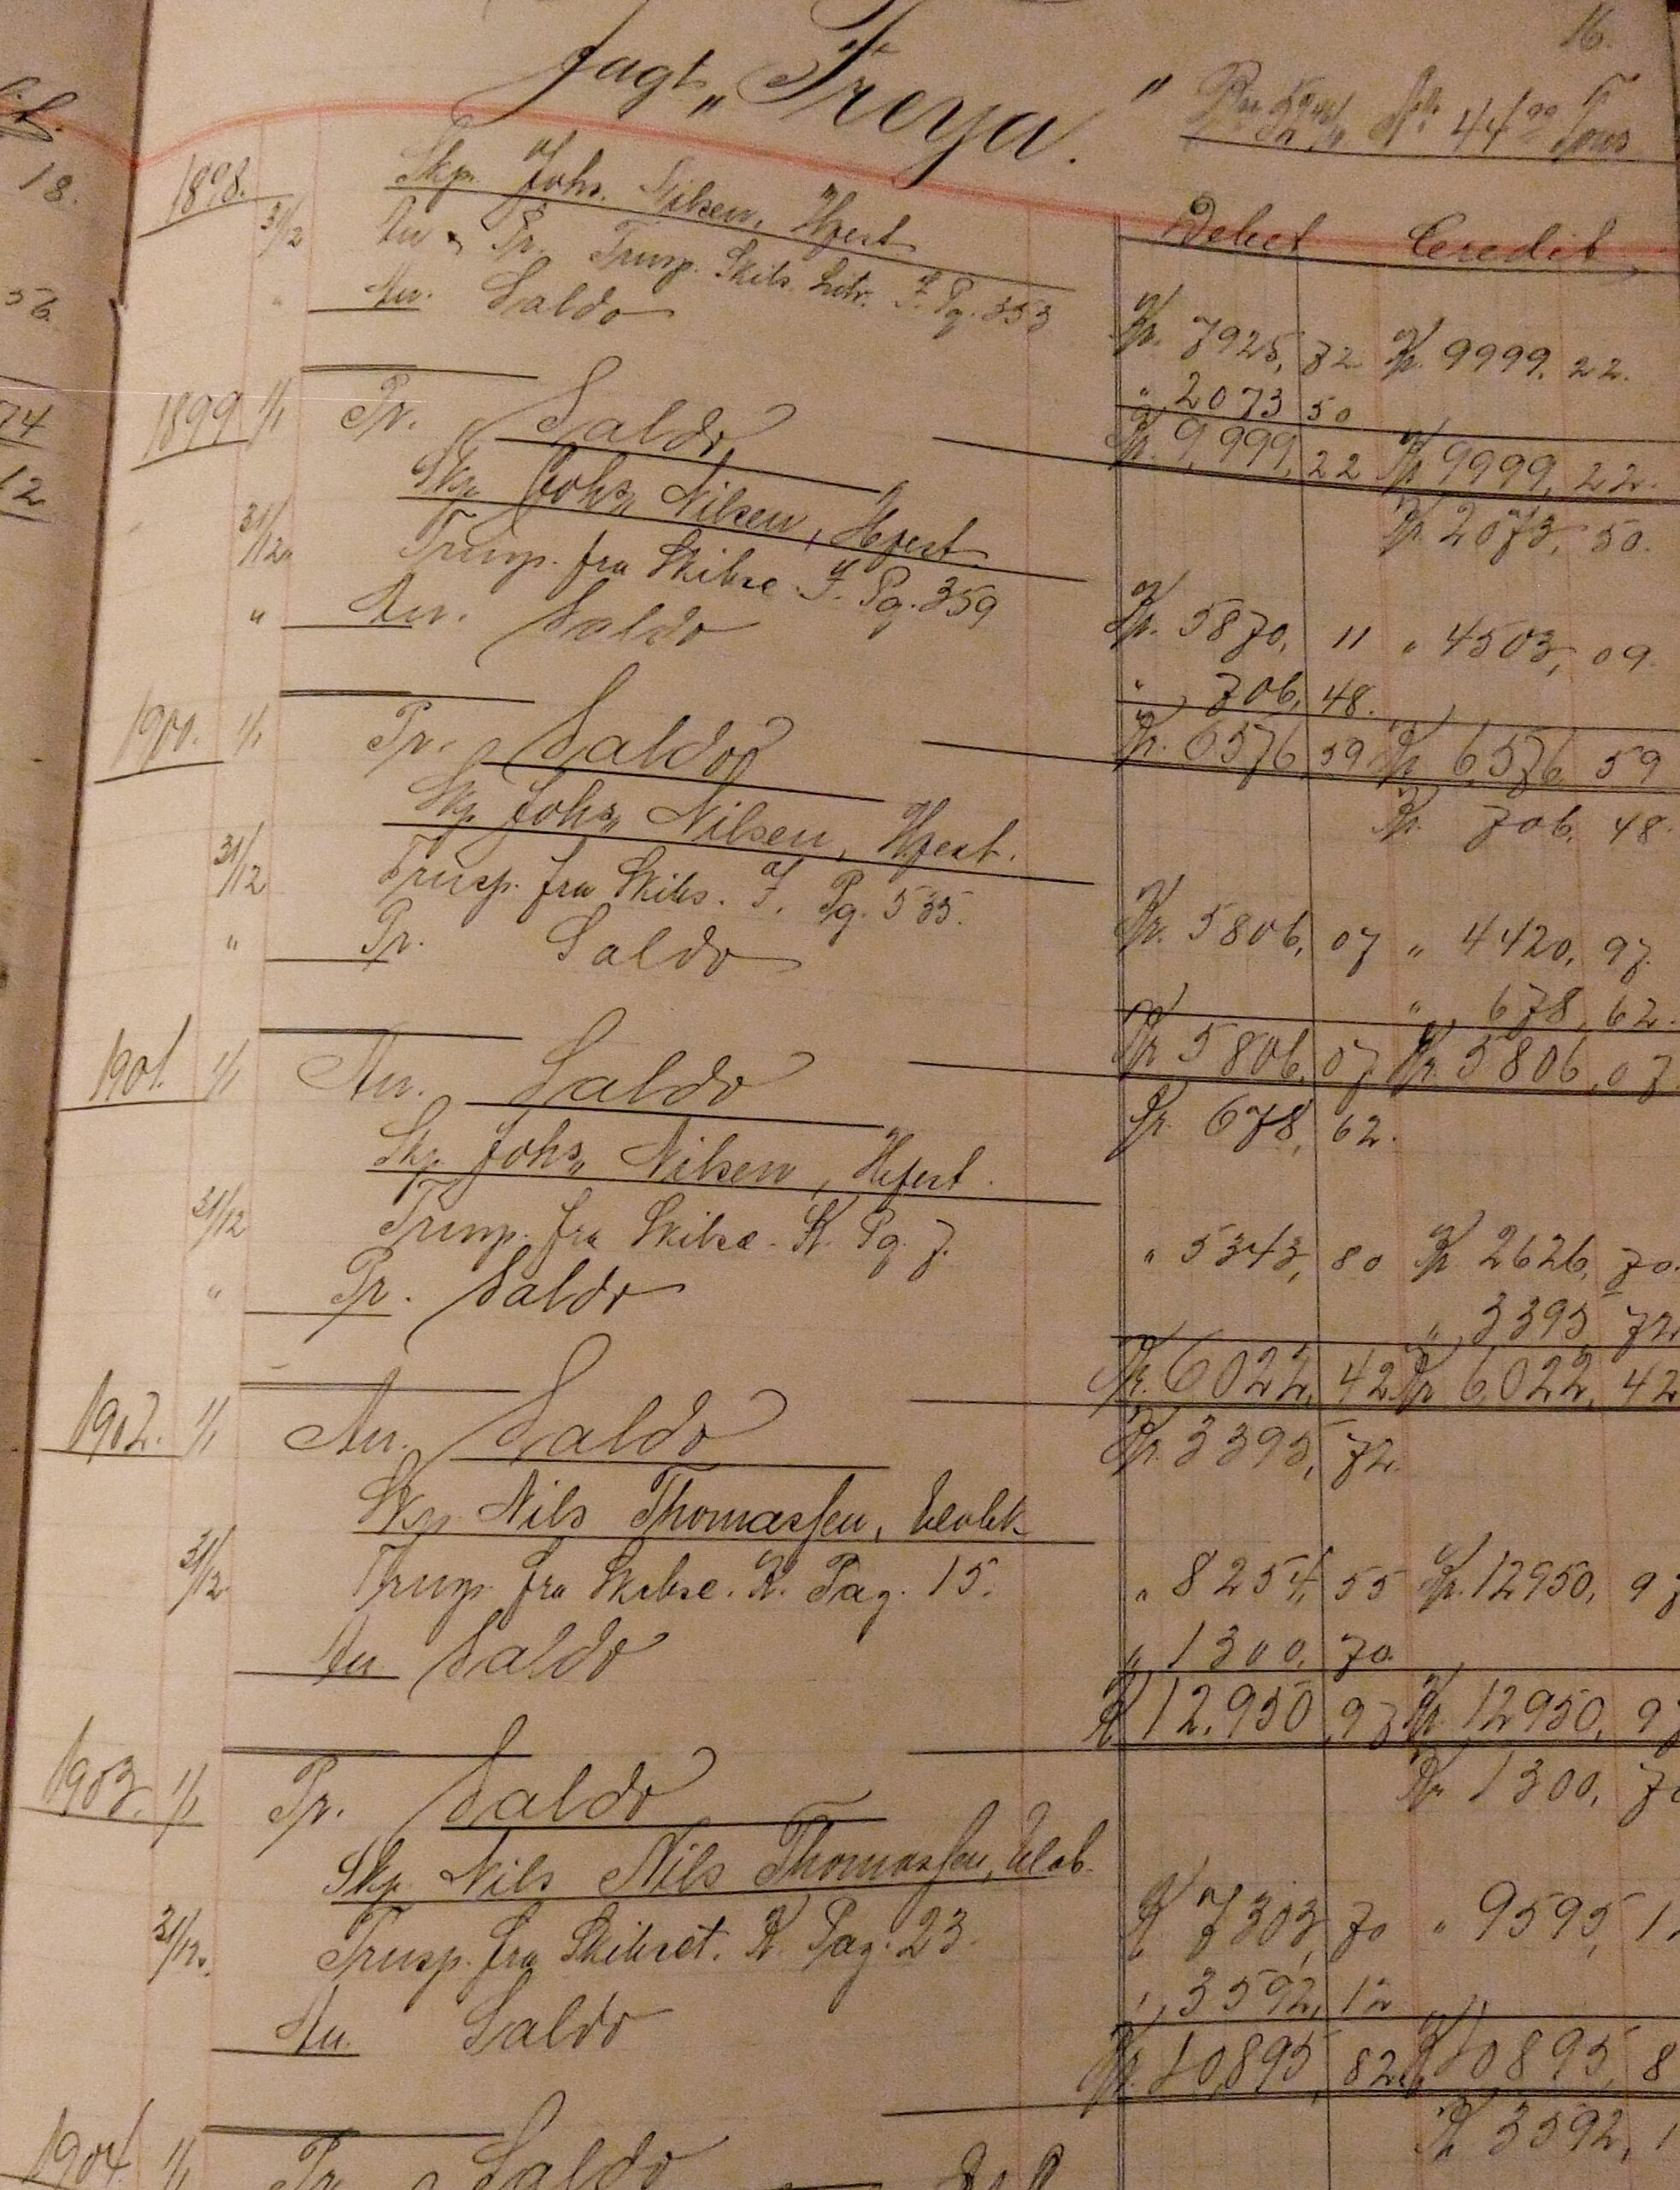 16.
Jagt „Freya."
44 Tons
Debet Credit
1898. Skp. Johs. Nilsen, Hjest
31/12 An & Pr. Trnsp. Skibs. F. Pg. 353 Kr. 7925,72 Kr. 9999.22.
" An. Saldo " 2073 50
Kr. 9,999,22 Kr 9999,22.
1899 1/1 Pr. Saldo Kr 2073,50.
Skp Johs„ Nilsen, Hjest
31/12 Trnsp. fra Skibse. F. Pg. 359 Kr. 5870,11 " 4503,09.
" An. Saldo " 706,48.
Kr. 6576,59 Kr 6,576 59
1900. 1/1 Pr. Saldo Kr. 706,48.
Skp Johs„ Nilsen, Hjest.
31/12 Trnsp. fra Skibs. F. Pg. 535. Kr. 5806,07 " 4420,97.
" Pr. Saldo " 678,62.
Kr 5806,07 Kr. 5806,07
1901. 1/1 An. Saldo Kr 678,62.
Skp Johs„ Nilsen, Hjest.
31/12 Trnsp. fra Skibse. K. Pg. 7. " 5343,80 Kr 2626,70.
" Pr. Saldo " 3395 72
Kr. 6022,42 Kr 6,022,42
1902. 1/1 An. Saldo Kr. 3395,72.
Skp Nils Thomassen,
31/12. Trnsp. fra Skibse. K. Pag. 15. " 8254,55 Kr. 12950,97
An Saldo " 1300,70.
Kr 12.950,97 Kr. 12950,97
1903. 1/1 Pr. Saldo Kr 1300,70
Skp. Nils Nils Thomassen,
31/12. Trnsp. fra Skibset. K. Pag. 23. Kr 7303,70 " 9595,1
An. Saldo " 3592,12
Kr. 10,895,82 Kr 10895,8
Kr 3592,1
1904. 1/1 Pr. Saldo
18.
56.
74
12